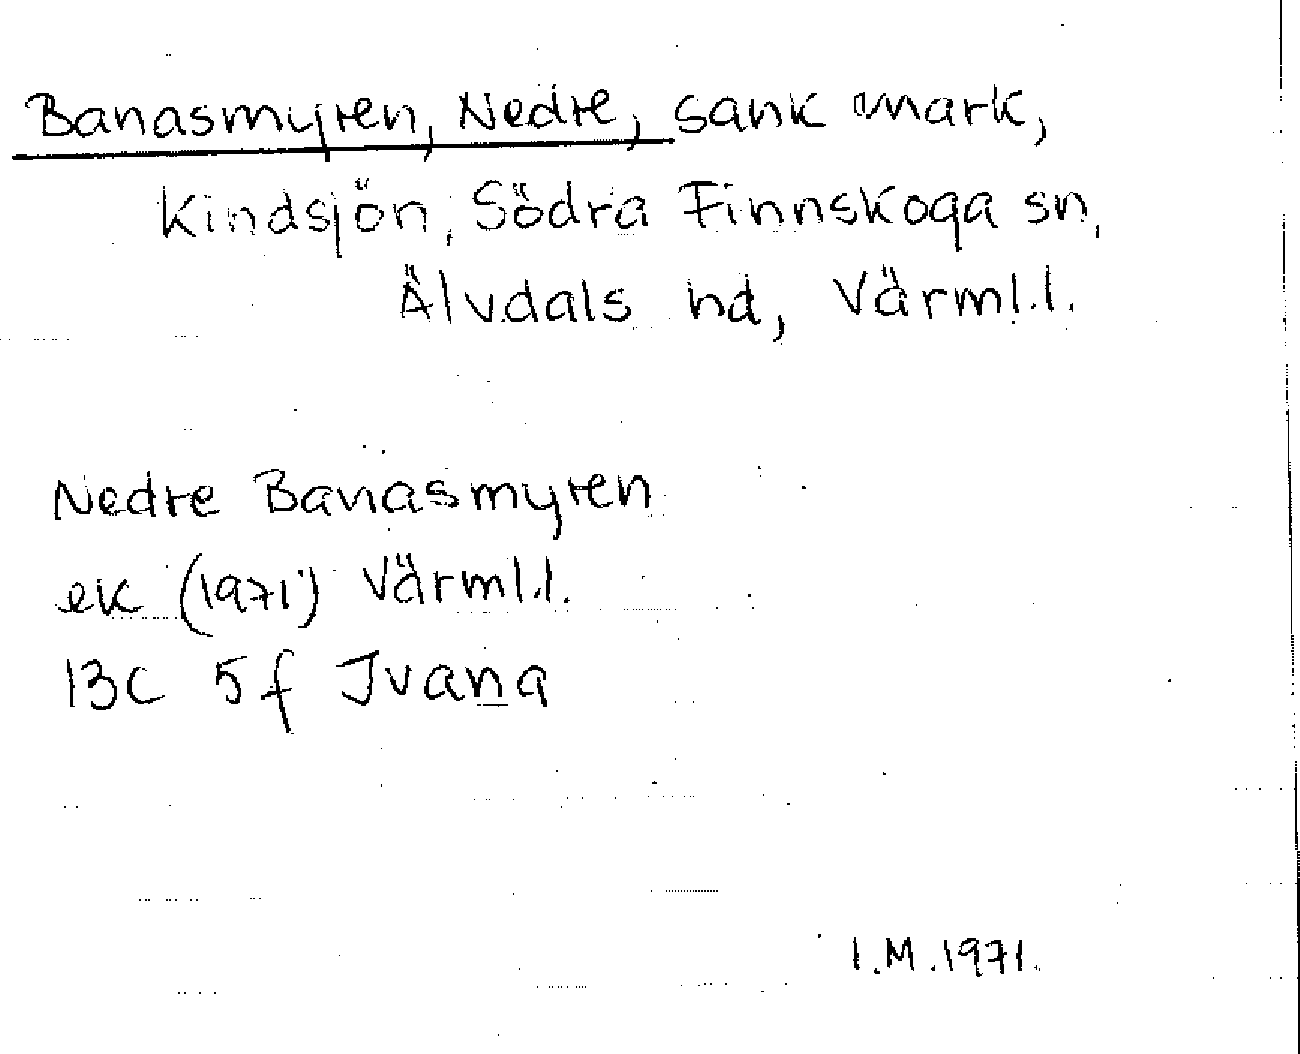 Banasmyren, Nedre, sank mark,
Kindsjön, Södra Finnskoga sn,
Älvdals hd, Värml.l.
Nedre Banasmyren
ek (1971) Värml.l.
13C 5f Jvana
I.M.1971.